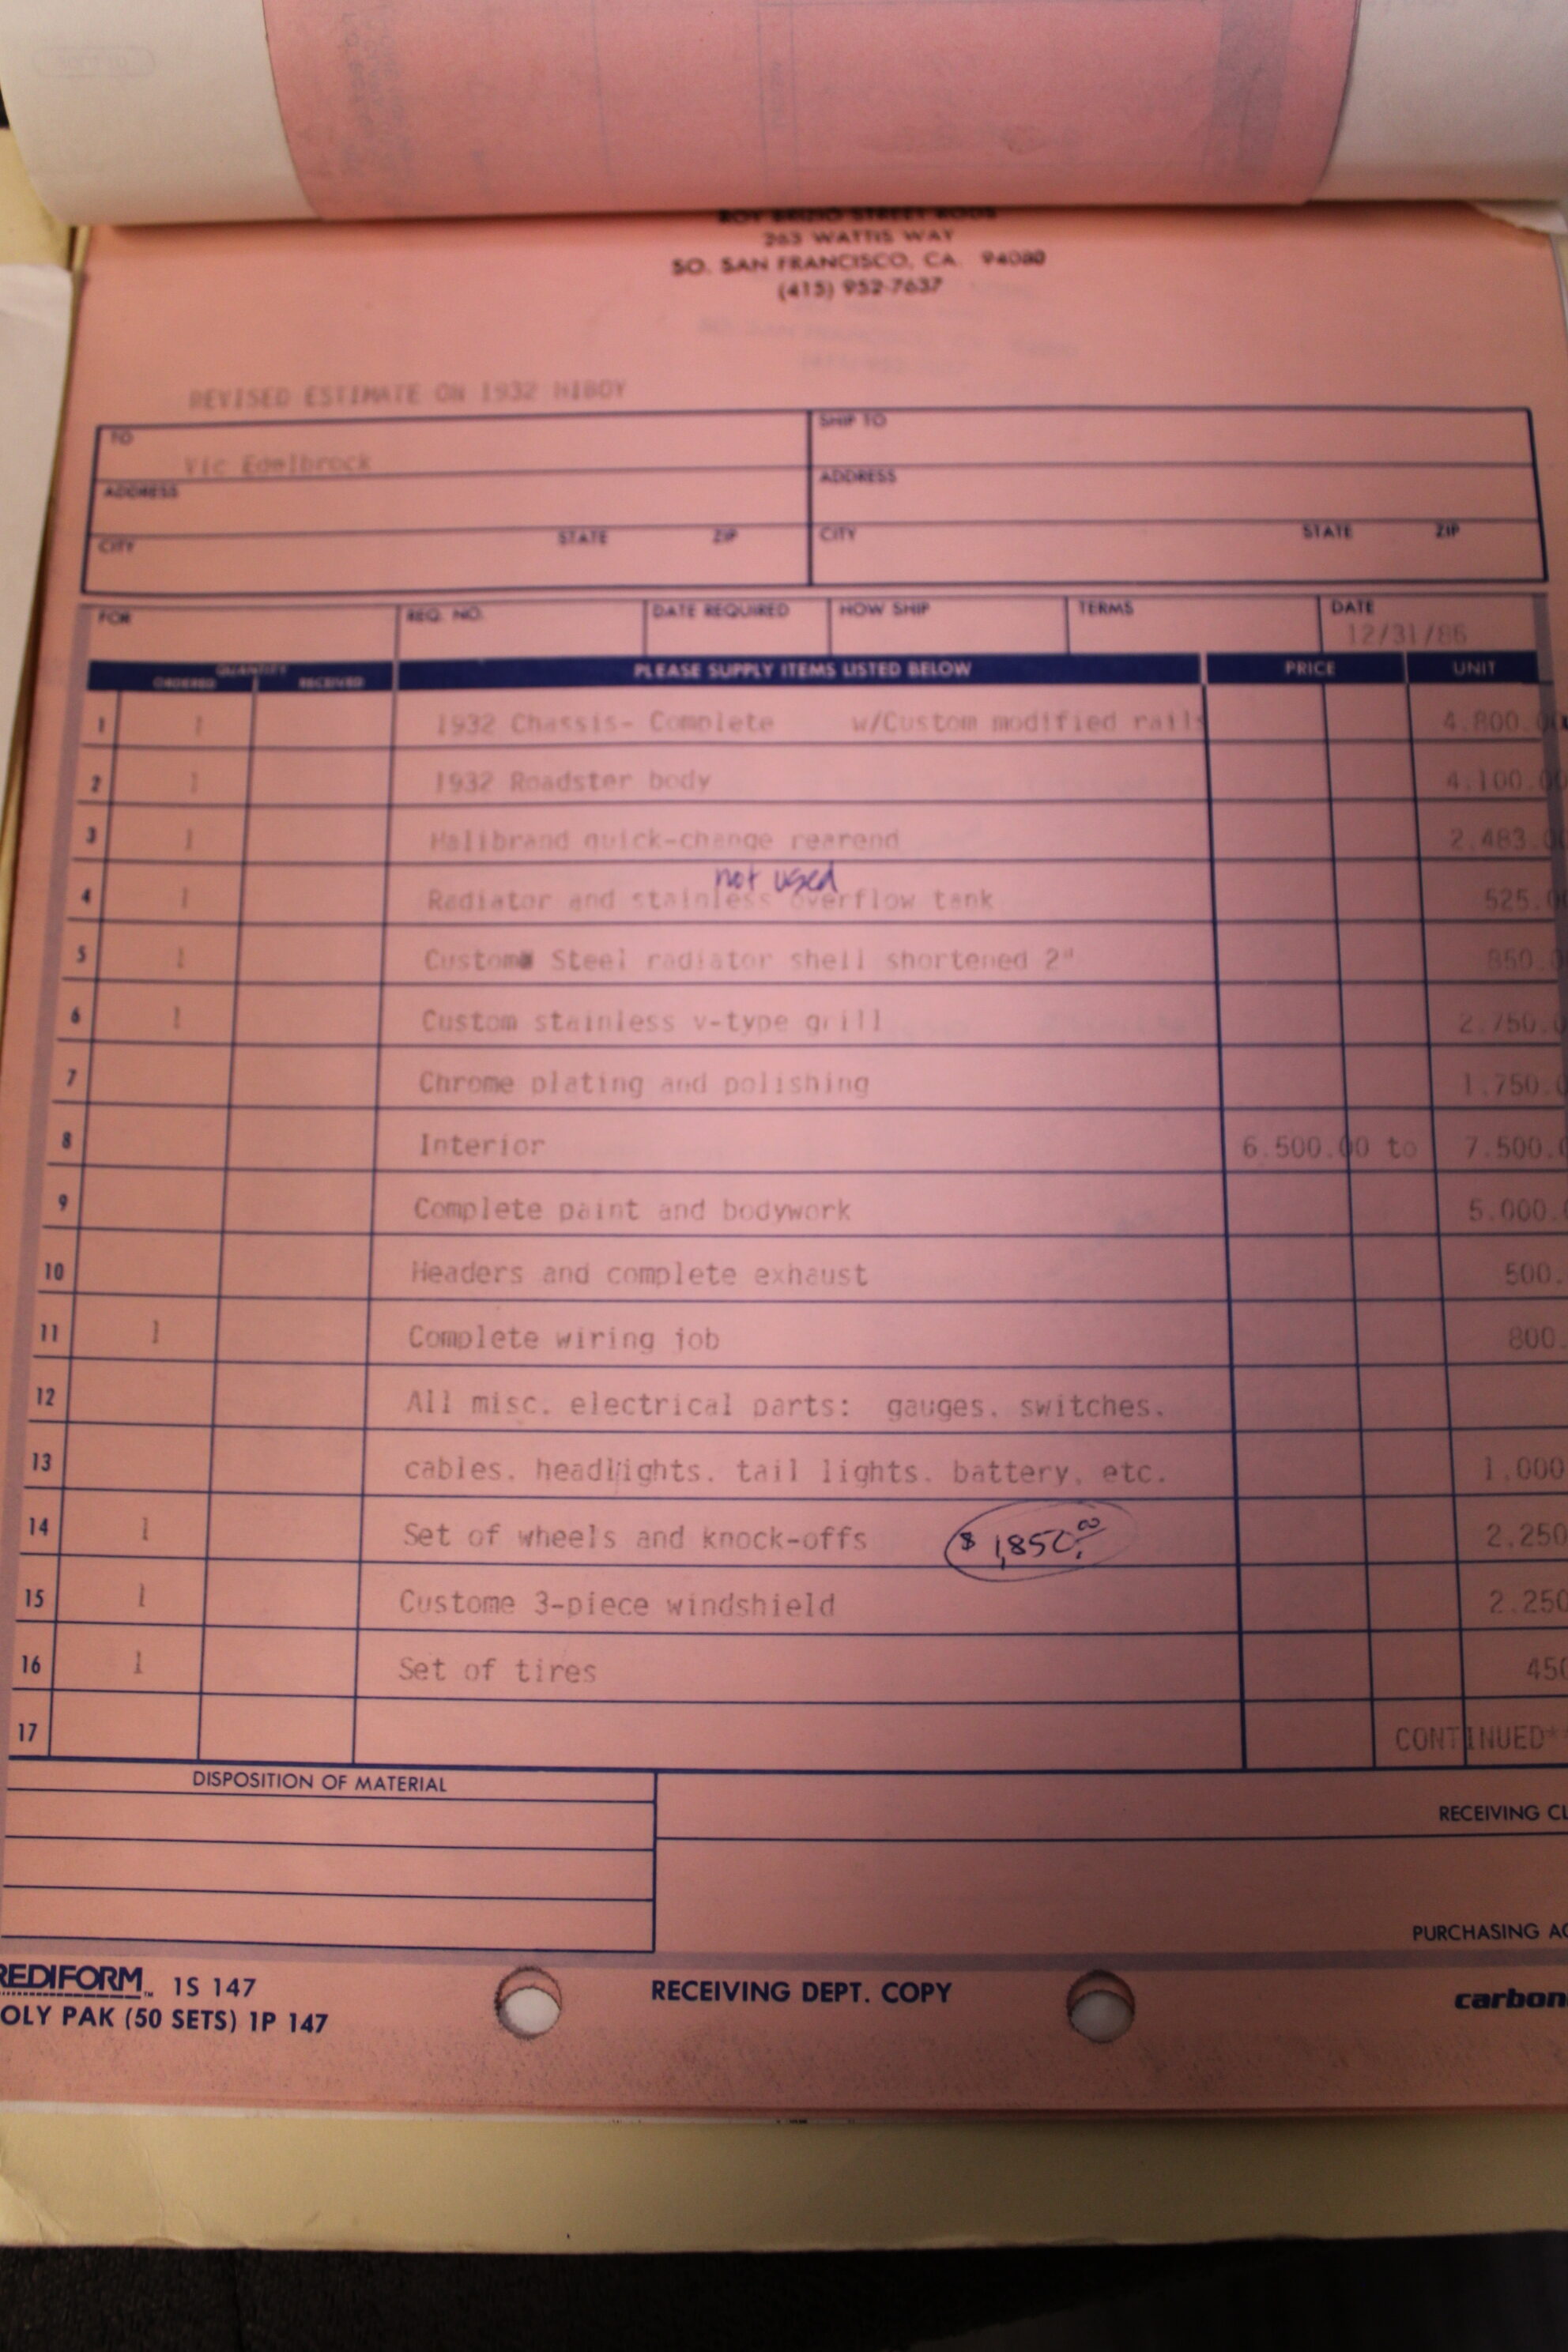 ROY BRIZIO STREET RODS
263 WATTIS WAY
SO. SAN FRANCISCO, CA. 94080
(415) 952-7637
REVISED ESTIMATE ON 1932 HIBOY
TO
Vic Edelbrock
ADDRESS
CITY STATE ZIP
SHIP TO
ADDRESS
CITY STATE ZIP
FOR REQ. NO. DATE REQUIRED HOW SHIP TERMS DATE
12/31/86
QUANTITY
ORDERED RECEIVED PLEASE SUPPLY ITEMS LISTED BELOW PRICE UNIT
1 1 1932 Chassis- Complete w/Custom modified rails 4.800.00
2 1 1932 Roadster body 4.100.00
3 1 Halibrand quick-change rearend 2.483.0
not used
4 1 Radiator and stainless overflow tank 525.0
5 1 Custom Steel radiator shell shortened 2" 850.0
6 1 Custom stainless v-type grill 2.750.0
7 Chrome plating and polishing 1.750.0
8 Interior 6.500.00 to 7.500.0
9 Complete paint and bodywork 5.000.
10 Headers and complete exhaust 500.
11 1 Complete wiring job 800.
12 All misc. electrical parts: gauges. switches.
13 cables. headlights. tail lights. battery, etc. 1.000
14 1 Set of wheels and knock-offs $1,850.00 2.250
15 1 Custome 3-piece windshield 2.250
16 1 Set of tires 450
17 CONTINUED**
DISPOSITION OF MATERIAL
RECEIVING CL
PURCHASING AG
REDIFORM™ 1S 147
OLY PAK (50 SETS) 1P 147
RECEIVING DEPT. COPY
carbon